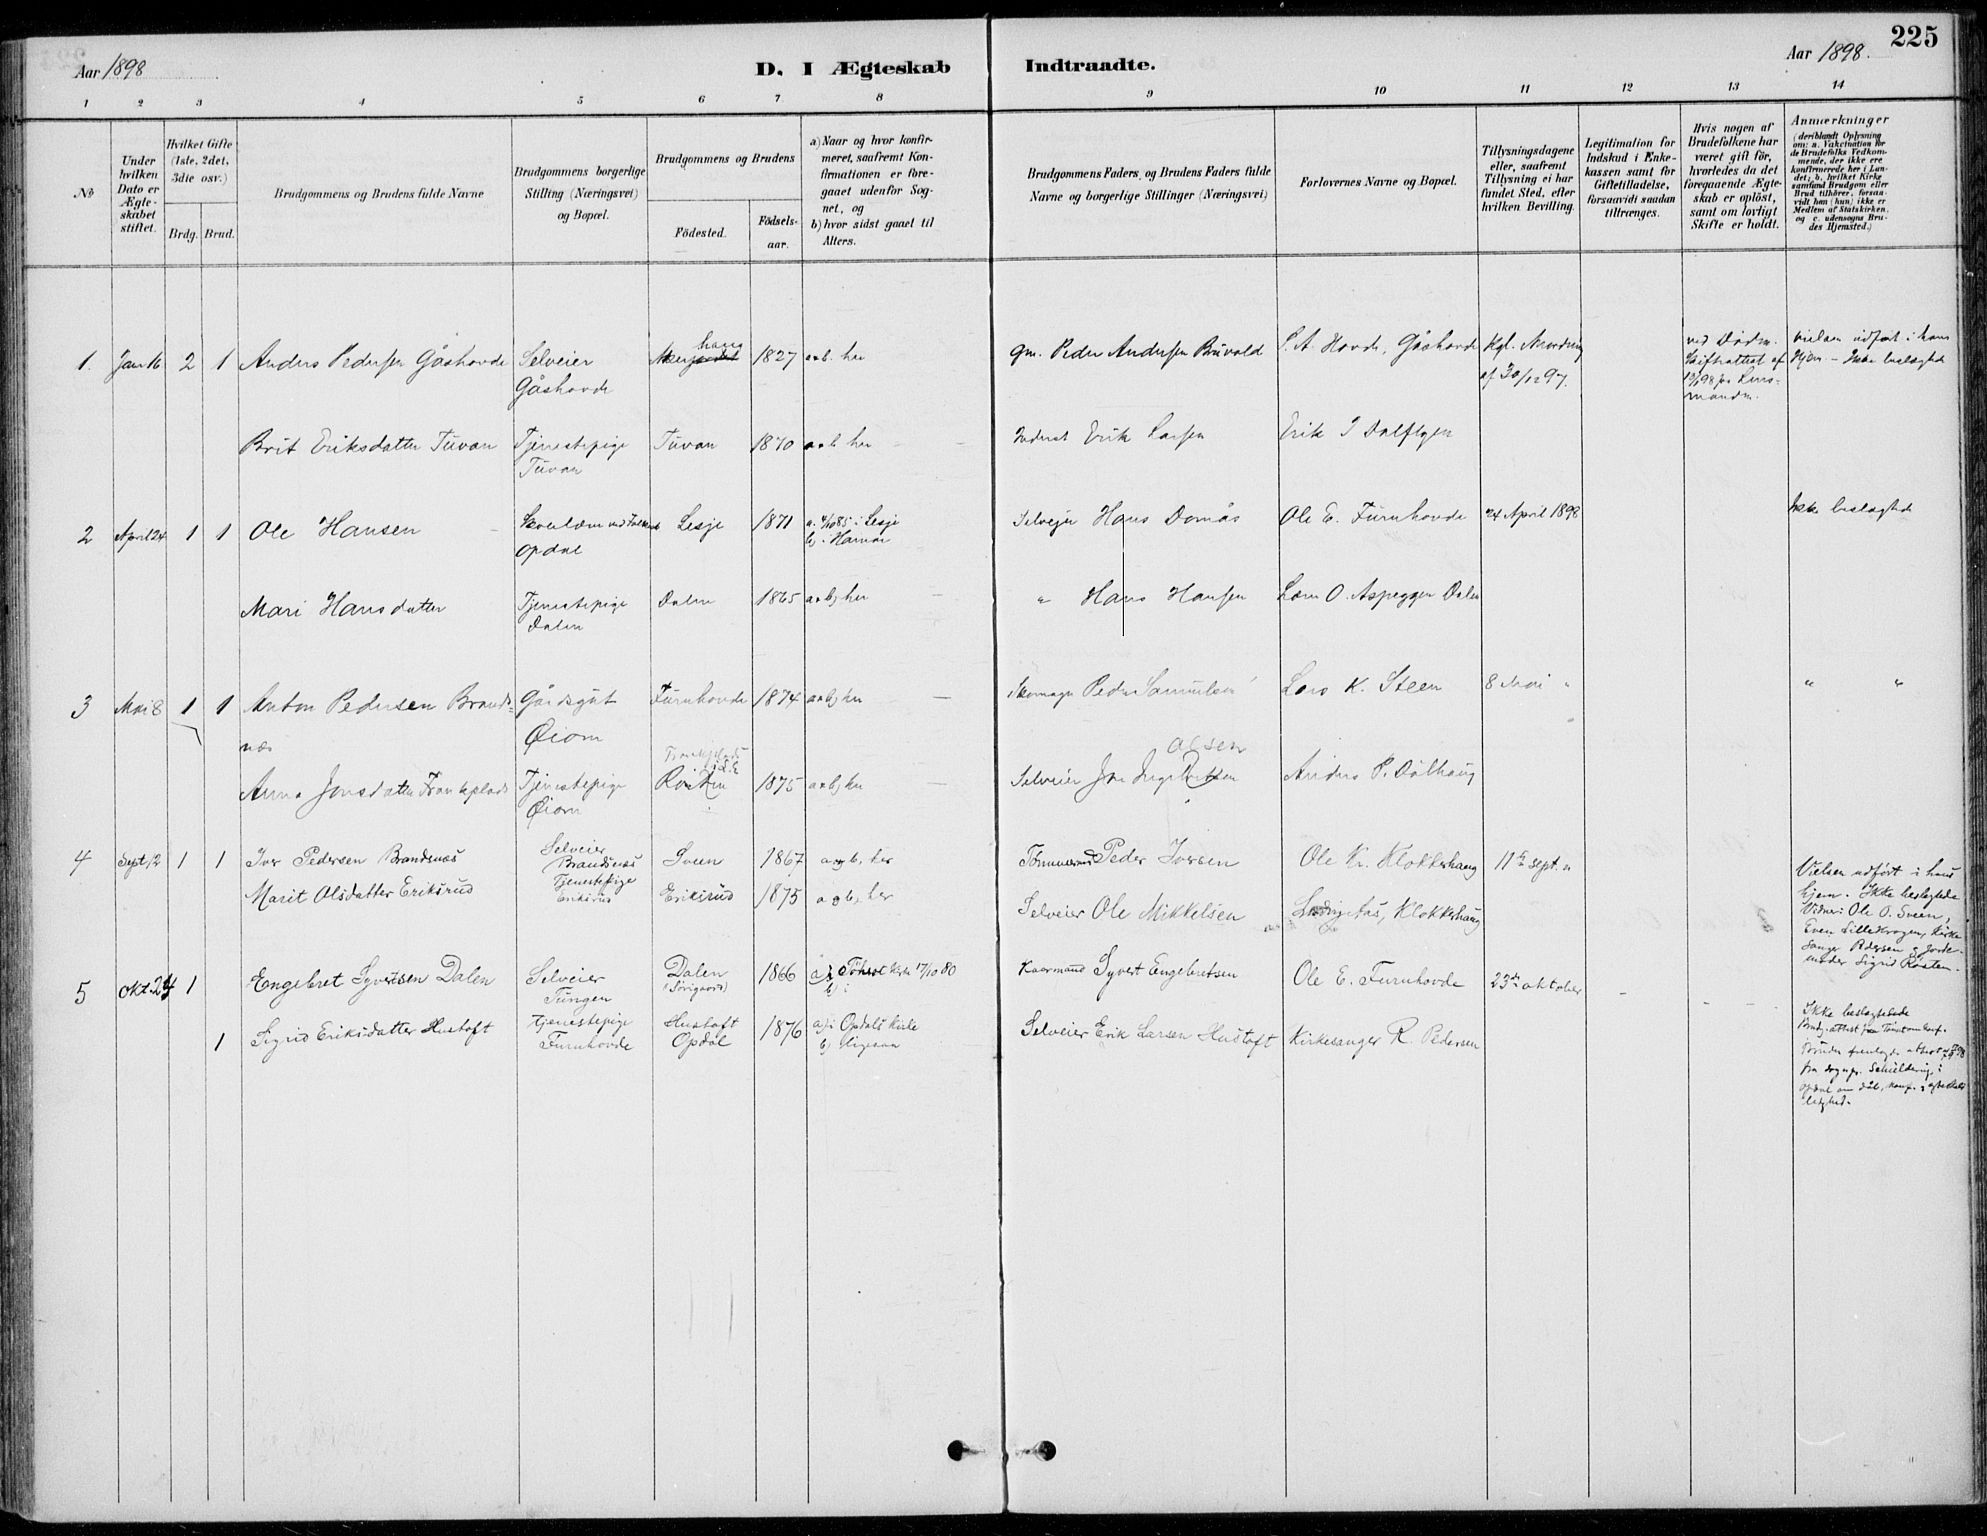 225
Aar 1898
D. I Ægteskab Indtraadte.
Aar 1898.
1 2 3 4 5 6 7 8 9 10 11 12 13 14
No
Under hvilken Dato er Ægte-skabet stiftet.
Hvilket Gifte (1ste, 2det, 3die osv.)
Brdg. Brud.
Brudgommens og Brudens fulde Navne
Brudgommens borgerlige Stilling (Næringsvei) og Bopæl.
Brudgommens og Brudens
Födested.
Födsels-aar.
a) Naar og hvor konfir-meret, saafremt Kon-firmationen er fore-gaaet udenfor Sog-net, og
b) hvor sidst gaaet til Alters.
Brudgommens Faders, og Brudens Faders fulde Navne og borgerlige Stillinger (Næringsvei)
Forlovernes Navne og Bopæl.
Tillysningsdagene eller, saafremt Tillysning ei har fundet Sted, efter hvilken Bevilling.
Legitimation for Indskud i Enke-kassen samt for Giftetilladelse, forsaavidt saadan tiltrænges.
Hvis nogen af Brudefolkene har været gift för, hvorledes da det foregaaende Ægte-skab er oplöst, samt om lovligt Skifte er holdt.
Anmærkninger (deriblandt Oplysning om: a. Vakcination for de Brudefolks Vedkom-mende, der ikke ere konfirmerede her i Lan-det; b. hvilket Kirke samfund Brudgom eller Brud tilhörer, forsaa-vidt han (hun) ikke er Medlem af Statskirken, og c. udensogns Bru-des Hjemsted.)
1. Jan 16 2 1 Anders Pedersen Gåshovde Selveier Gåshovde haug 1827 a+b. her gm. Peder Andersen Bruvold P. A. Hovde, Gåshovde Kgl. Anordning af 30/12 97. ved Döden. Skifteattest af 12/1 98 fra Lens-manden. Vielsen udført i hans Hjem - Ikke beslægtede
Brit Eriksdatter Tuvan Tjenestepige Tuvan Tuvan 1870 a+b. her Inderst Erik Larsen Erik
2 April 24 1 1 Ole Hansen Opdal Lesje 1871 a. 4/10 85 i Lesje b) i Hamar Selveier Hans Domås Ole E. Furuhovde 24 April 1898 Ikke beslægtede
Mari Hansdatter Tjenestepige Dalen Dalen 1865 a+b) her " Hans Hansen O. Aspeggen Dalen
3 Mai 8 1 1 Anton Pedersen Brands-næs Gårdsgut Øiom Furuhovde 1874 a+b) her Skomager Peder Samuelsen Lars K. Steen 8 Mai " " "
Anna Jonsdatter Tjenestepige Øiom 1875 a+b) her Selveier Jon Olsen Anders P. Dølhaug
4 Sept 12 1 1 Iver Pedersen Brandsnæs Selveier Brandsnæs Sveen 1867 a og b, her Tømmermand Peder Iversen Ole Kr. Klokkerhaug 11te sept. "
Marit Olsdatter Eriksrud Tjenestepige Eriksrud Eriksrud 1875 a og b, her Selveier Ole Mikkelsen Klokkerhaug
Vielsen udført i hans hjem. Ikke beslægtede Vidner: Ole O. Sveen, Even Lillekrogen, Kirke-sanger Pedersen og Jorde-moder Sigrid Røsten.
5 Okt. 24 1 Engebret Syvertsen Dalen Selveier Tungen Dalen (Sörigaard) 1866 a) i Töhsol Kirke 17/10 80 b) i Kaarmand Syvert Engebretsen Ole E. Furuhovde 23de oktober
1 Sigrid Eriksdatter Hustoft Tjenestepige Furuhovde Hustoft Opdal 1876 a) i Opdals Kirke b) ligesaa Selveier Erik Larsen Hustoft Kirkesanger R. Pedersen
Ikke beslægtede Brudg. attest fra Bruden fremlagde attest fra sognepr. Schieldering, i Opdal om dåb, konf. og ægteskabe-lighed.